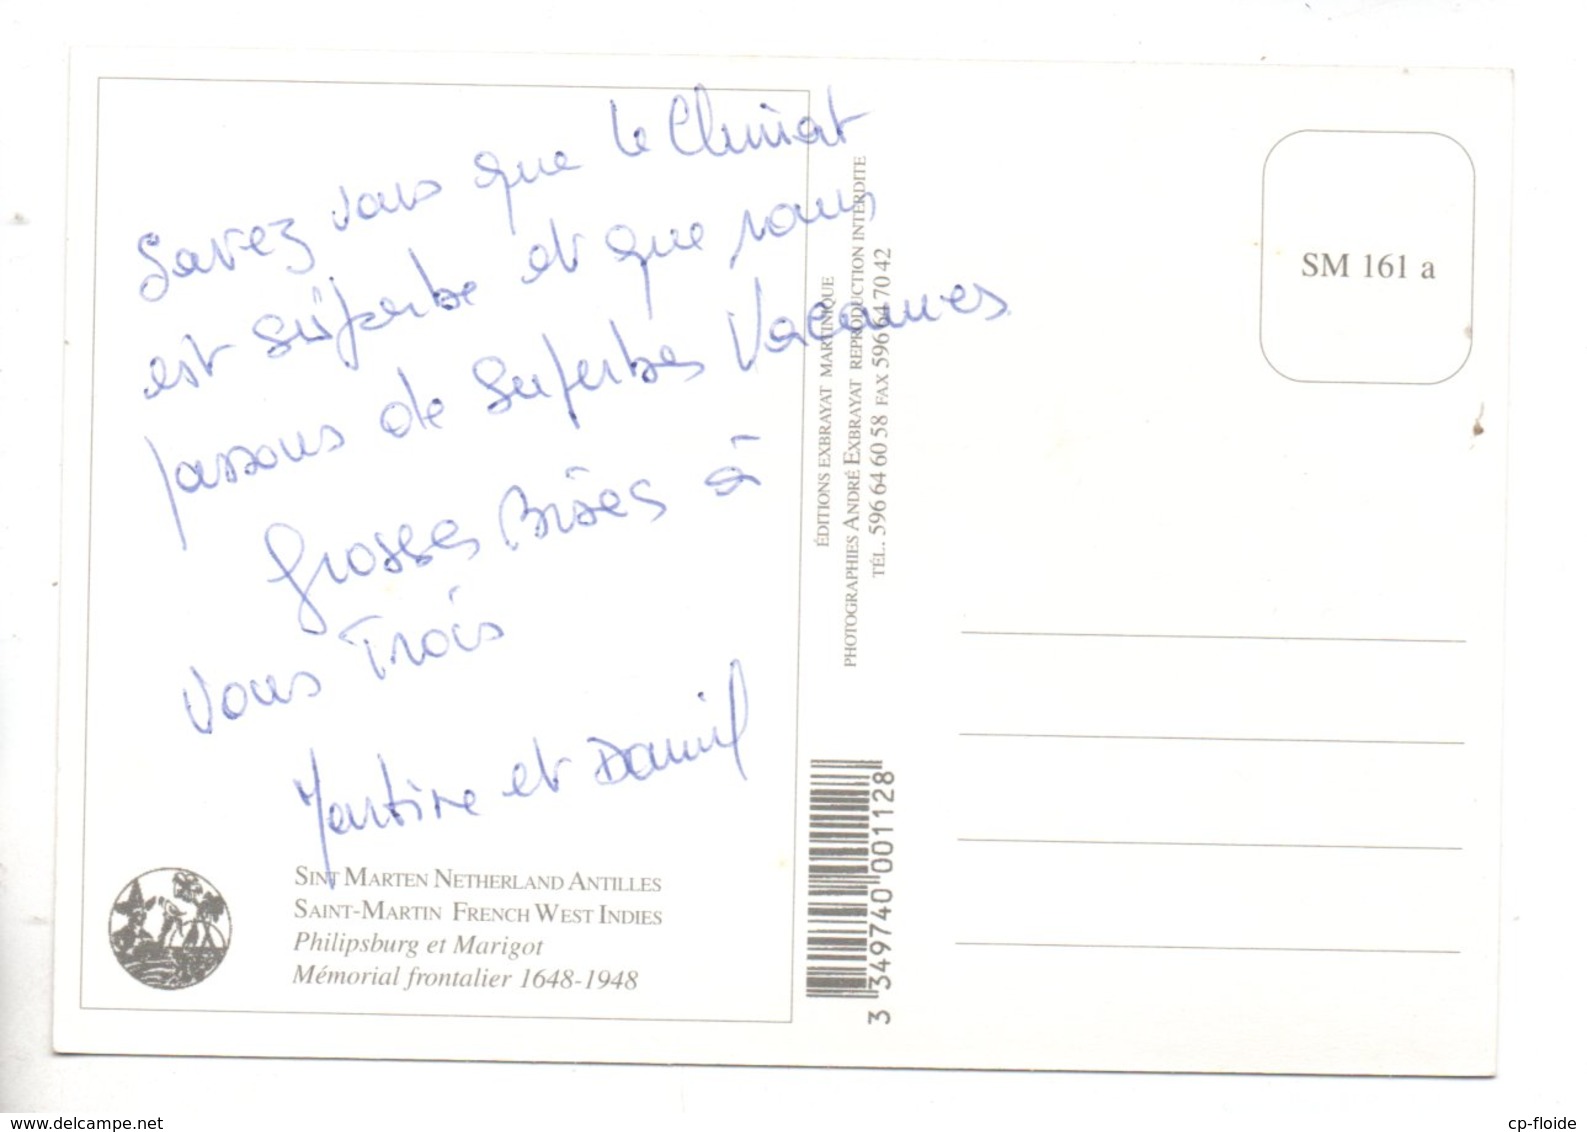 Savez vous que le Climat
est superbe et que nous
passons de superbes Vacances
Grosses Bises à
Vous Trois
Martine et Daniel
SINT MARTEN NETHERLAND ANTILLES
SAINT-MARTIN FRENCH WEST INDIES
Philipsburg et Marigot
Mémorial frontalier 1648-1948
ÉDITIONS EXBRAYAT MARTINIQUE
PHOTOGRAPHIES ANDRÉ EXBRAYAT REPRODUCTION INTERDITE
TÉL. 596 64 60 58 FAX 596 64 70 42
3 349740 001128
SM 161 a
www.delcampe.net
cp-floide